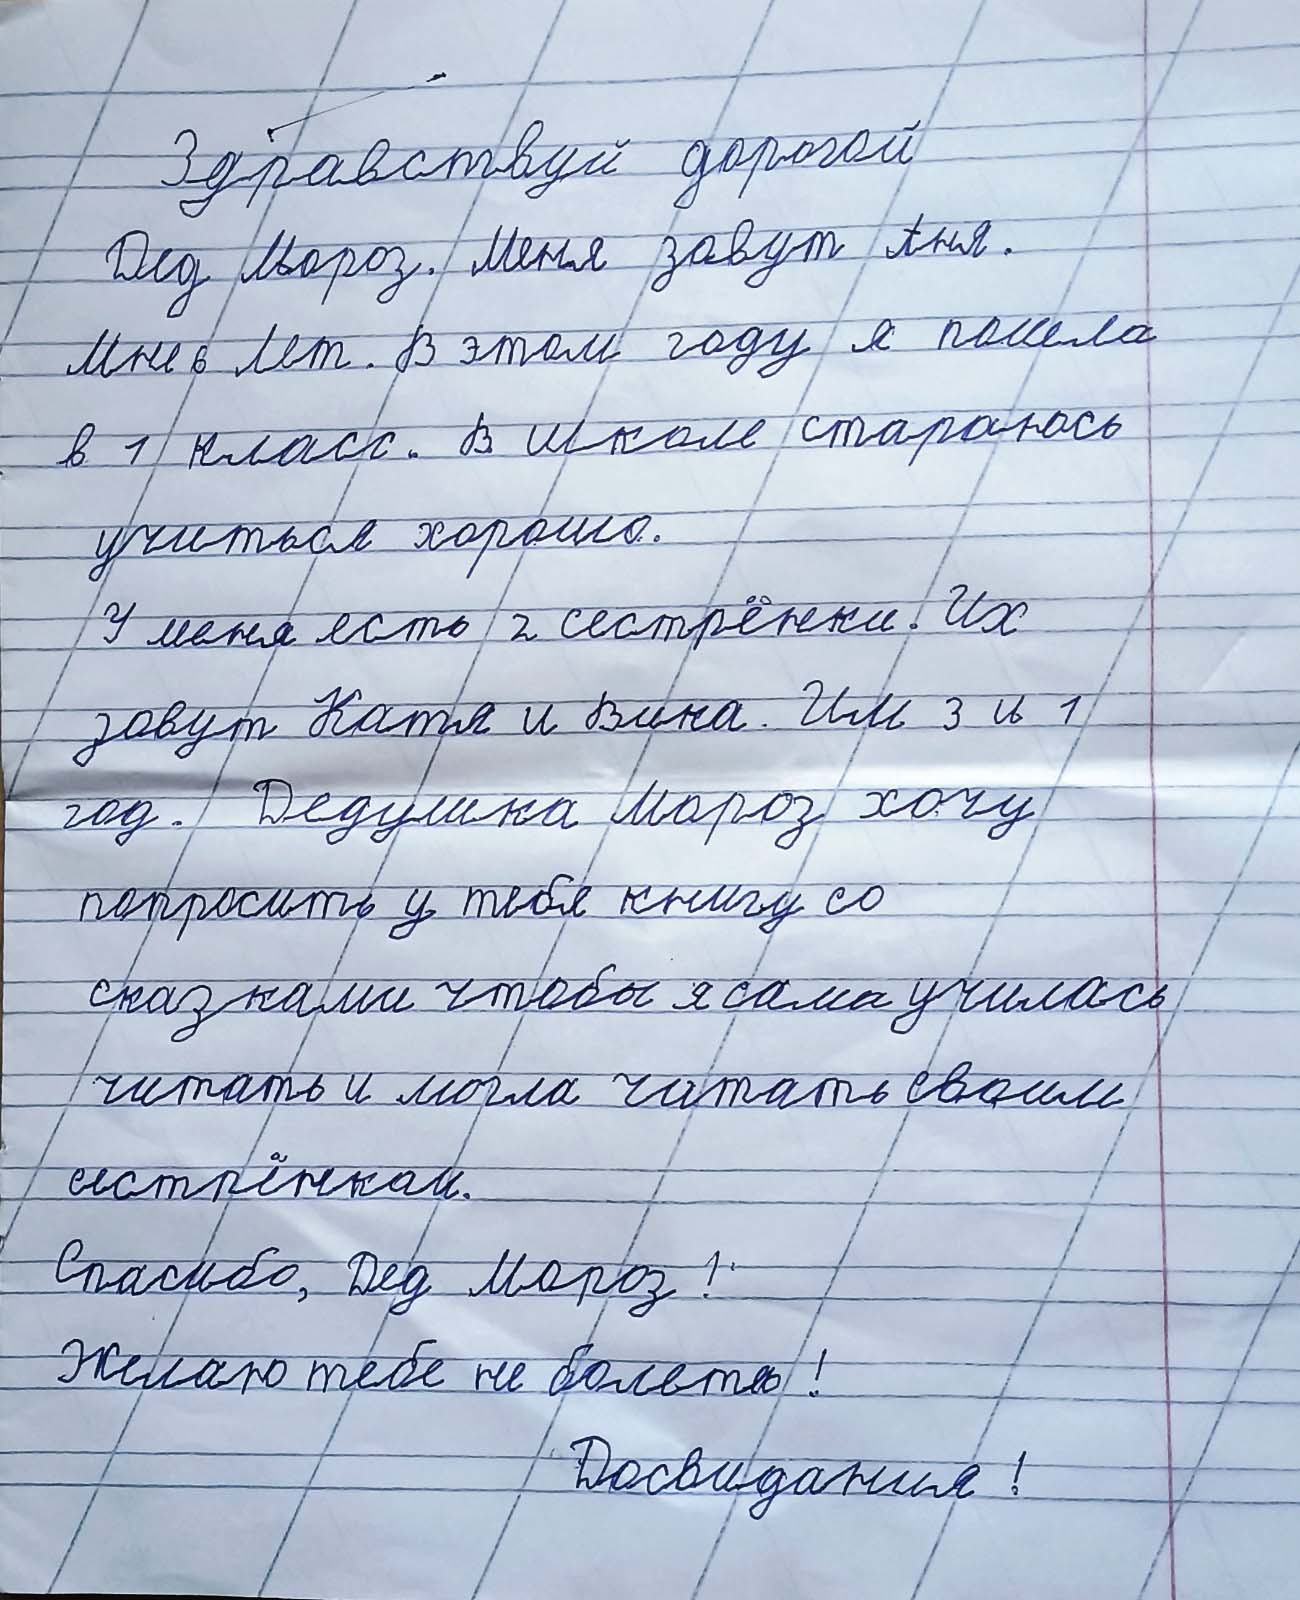 Здравствуй дорогой
Дед Мороз. Меня зовут Аня.
Мне 6 лет. В этом году я пошла
в 1 класс. В школе стараюсь
учиться хорошо.
У меня есть 2 сестрёнки. Их
зовут Катя и Вика. Им 3 и 1
год. Дедушка Мороз хочу
попросить у тебя книгу со
сказками чтобы я сама училась
читать и могла читать своим
сестрёнкам.
Спасибо, Дед Мороз!
Желаю тебе не болеть!
Досвидания!